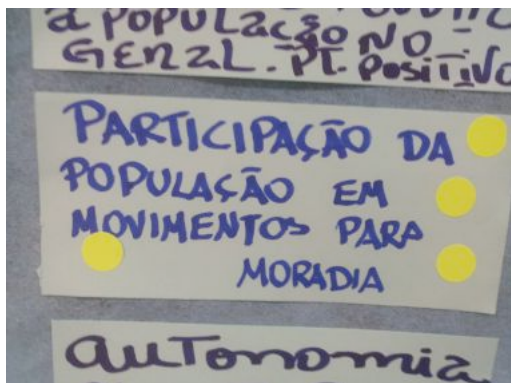 a POPULação NO
GERAL. PT. POSITIVO
PARTICIPAÇÃO DA
POPULAÇÃO EM
MOVIMENTOS PARA
MORADIA
AUTonomia